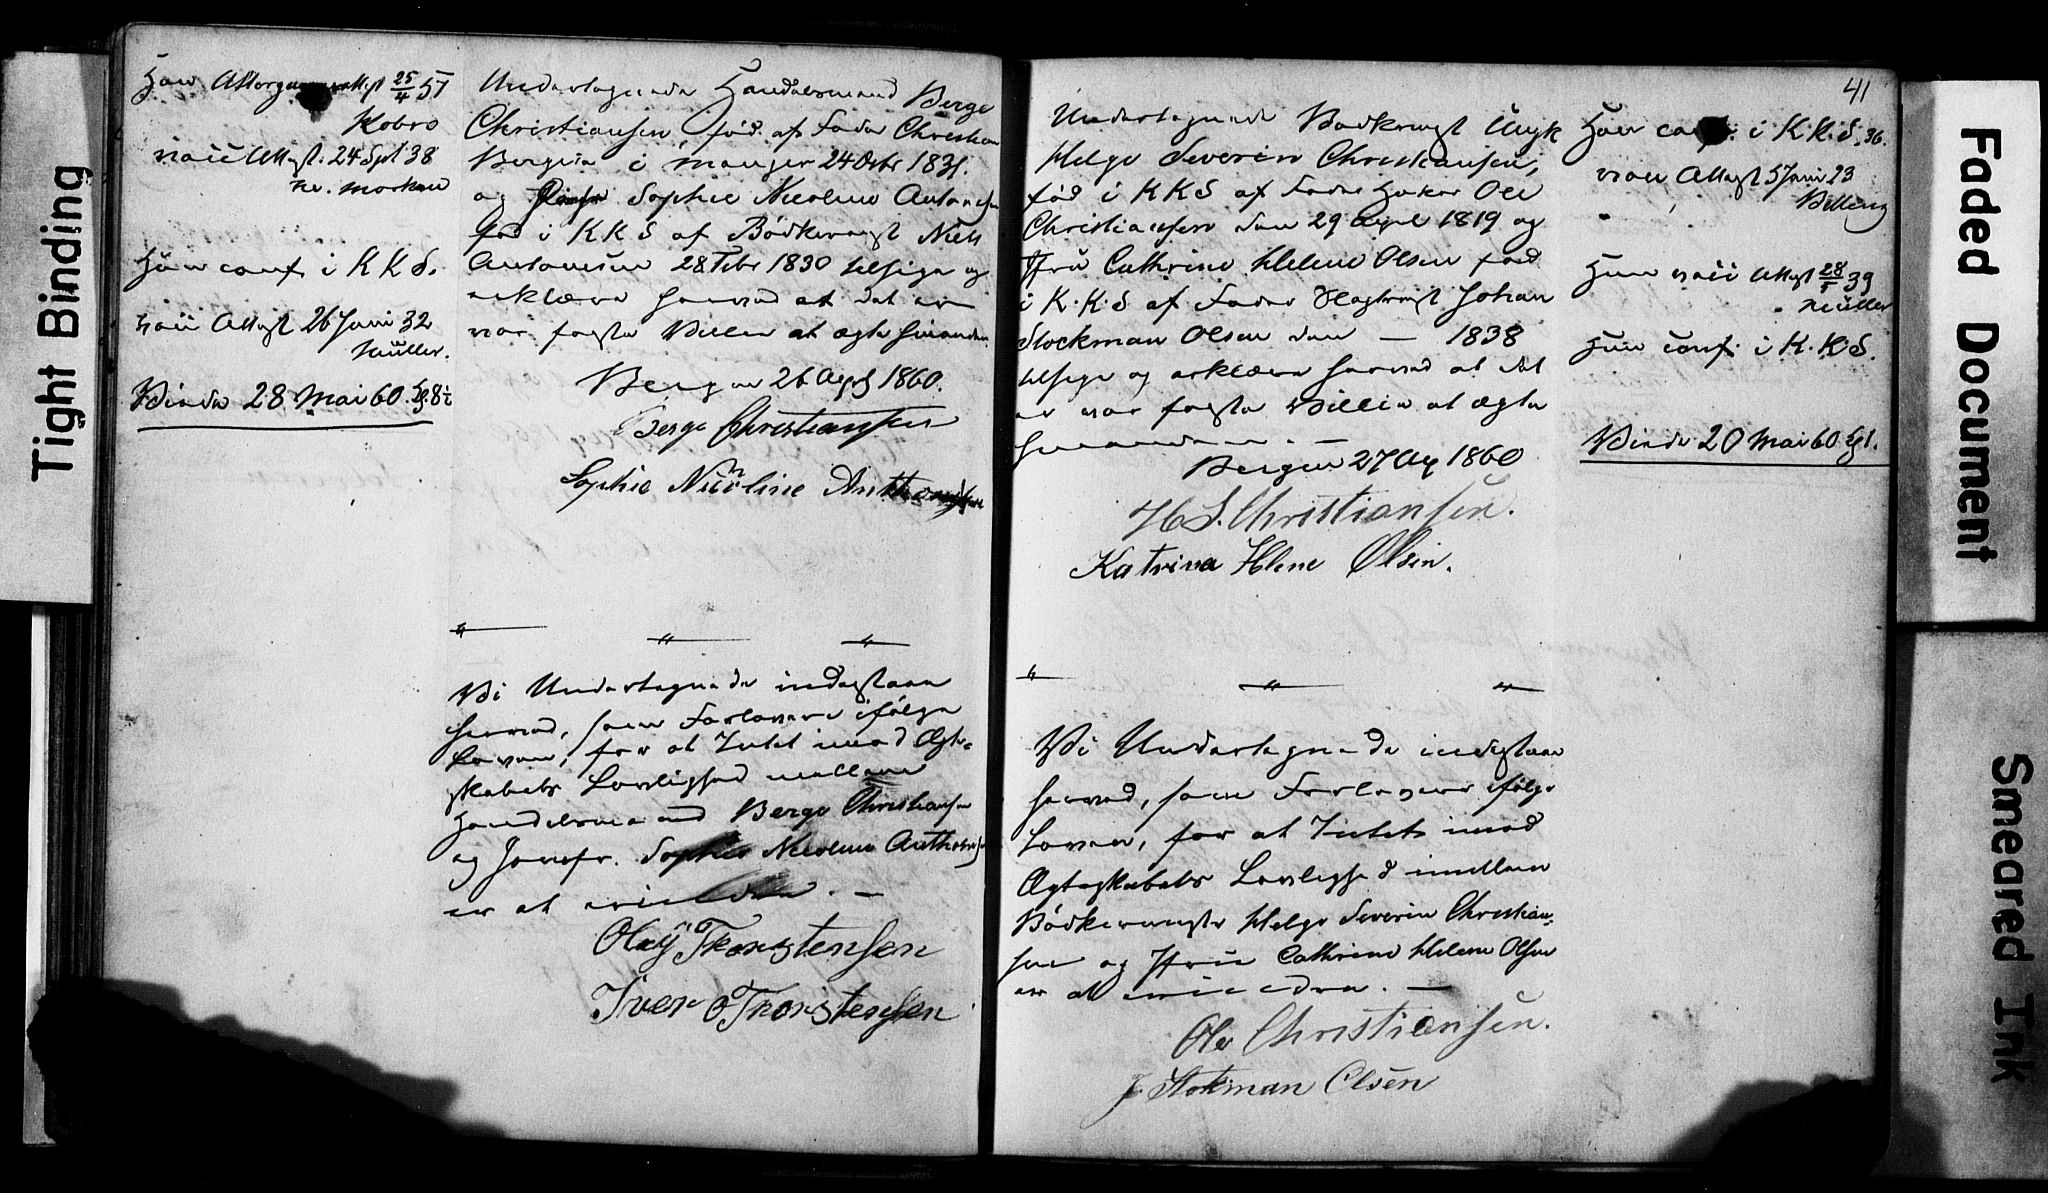 Tight Binding
Han Attest 25/4 51
Kobro
vacc Attest. 24 Spt 38
Hun conf. i K K S.
vacc Attest 26 Juni 32
Müller.
Viede 28 Mai 60 Kl 8½
Undertegnede Handelsmand Berge
Christiansen, fød af Fader Christian
i Manger 24 Octbr 1831.
og Sophie Nicoline Antonesen
fød i K K S af Bødkersvgt Niels
Antonesen 28 Febr 1830 tilstaa og
erklære herved at det er
vor faste Villie at ægte hinanden
Bergen 26 April 1860.
Berge Christiansen
Sophie Nicoline Anthonesen
" " "
Vi Undertegnede indestaae
herved, som Forlovere ifølge
Loven, for at Intet imod Ægte-
skabets Lovlighed mellem
Handelsmand Berge Christiansen
og Jomfr. Sophie Nicoline Anthonesen
er at
Thorstensen
Iver O Thorstensen
41
Undertegnede Bødkersvgt Ungk
Helge Severin Christiansen,
fød i K K S af Fader Ole
Christiansen den 29 April 1819 og
Jfru Cathrine Helene Olsen fød
i K. K. S af Fader Johan
Stockman Olsen den — 1838
og erklære herved at det
er vor faste Villie at ægte
hinanden. —
Bergen 27 Ap 1860
H S. Christiansen.
Katrina Helene Olsen.
" " "
Vi Undertegnede indestaae
herved, som Forlovere ifølge
Loven, for at Intet imod
Ægteskabets Lovlighed imellem
Bødkersvgt Helge Severin Christian-
sen og Jfru Cathrine Helene Olsen
er at —
Ole Christiansen.
J. Stokman Olsen
Han conf. i K K. S. 36.
vacc Attest 5 Juni 23
Hun vacc Attest 39
Müller
Hun conf. i K. K. S.
Viede 20 Mai 60 Kl.
Faded Document
Smeared Ink